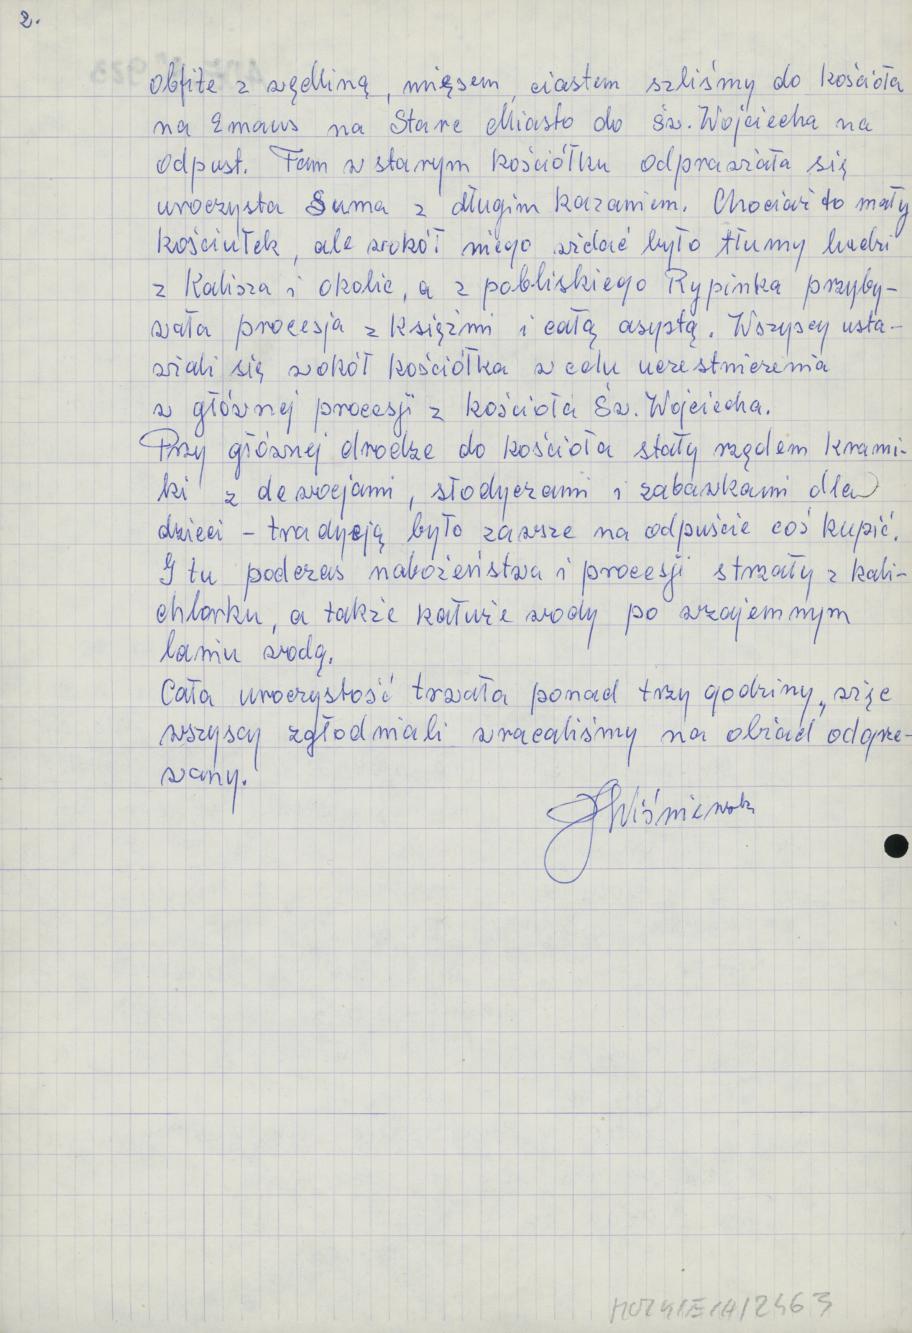 2.
obfite z wędliną, mięsem, ciastem szliśmy do kościoła
na Emaus na Stare Miasto do Św. Wojciecha na
odpust. Tam w starym kościółku odprawiała się
uroczysta Suma z długim kazaniem. Chociaż to mały
kościułek, ale wokół niego widać było tłumy ludzi
z Kalisza i okolic, a z pobliskiego Rypinka przyby-
wała procesja z księżmi i całą asystą. Wszyscy usta-
wiali się wokół kościółka w celu uczestniczenia
w głównej procesji z kościoła Św. Wojciecha.
Przy głównej drodze do kościoła stały rzędem krami-
ki z dewocjami, słodyczami i zabawkami dla
dzieci - tradycją było zawsze na odpuście coś kupić.
I tu podczas nabożeństwa i procesji strzały z kali-
chlorku, a także kałuże wody po wzajemnym
laniu wodą.
Cała uroczystość trwała ponad trzy godziny, więc
wszyscy zgłodniali wracaliśmy na obiad odgrze-
wany.
JWiśniewska